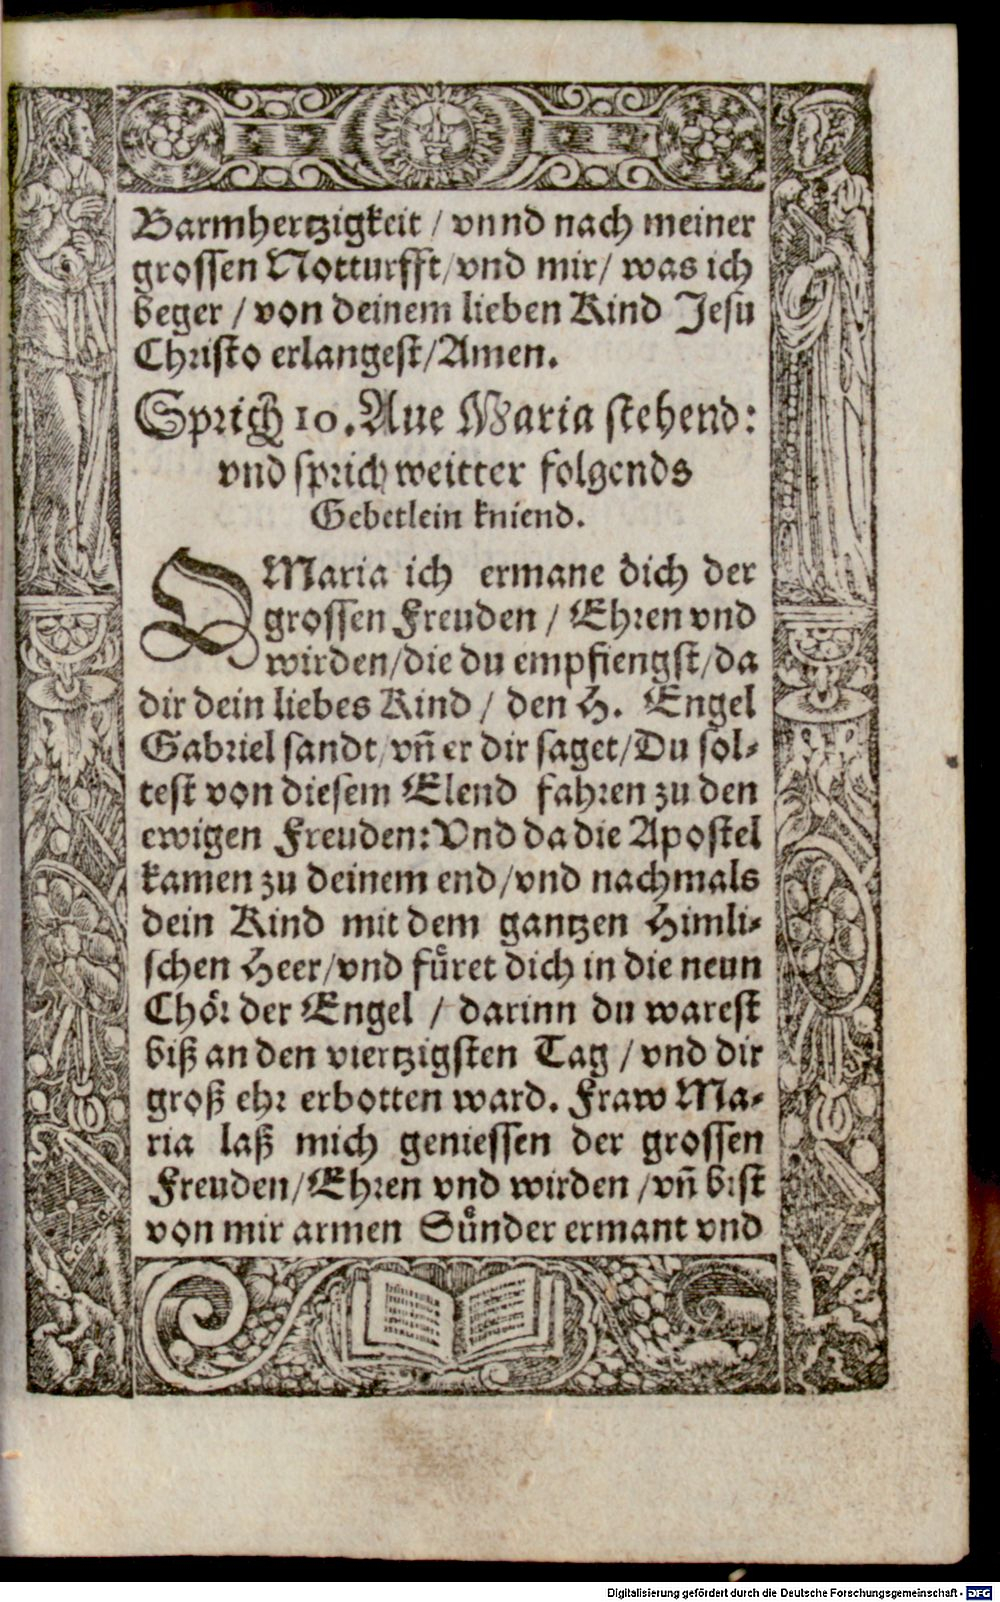 Barmhertzigkeit / vnnd nach meiner
grossen Notturfft/vnd mir/ was ich
beger / von deinem lieben Kind Jesu
Christo erlangest/Amen.
Sprich 10. Aue Maria stehend:
vnd sprich weitter folgends
Gebetlein kniend.
O Maria ich ermane dich der
grossen Freuden / Ehren vnd
wirden/die du empfiengst/da
dir dein liebes Kind / den H. Engel
Gabriel sandt/vñ er dir saget/Du sol-
test von diesem Elend fahren zu den
ewigen Freuden: Vnd da die Apostel
kamen zu deinem end/vnd nachmals
dein Kind mit dem gantzen Himli-
schen Heer/vnd fuͤret dich in die neun
Choͤr der Engel / darinn du warest
biß an den viertzigsten Tag / vnd dir
groß ehr erbotten ward. Fraw Ma-
ria laß mich geniessen der grossen
Freuden/Ehren vnd wirden /vñ bist
von mir armen Suͤnder ermant vnd
Digitalisierung gefördert durch die Deutsche Forschungsgemeinschaft - DFG